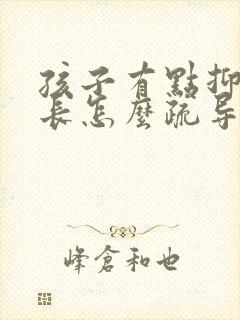 孩子有點抑
長怎麼疏导
峰倉和也